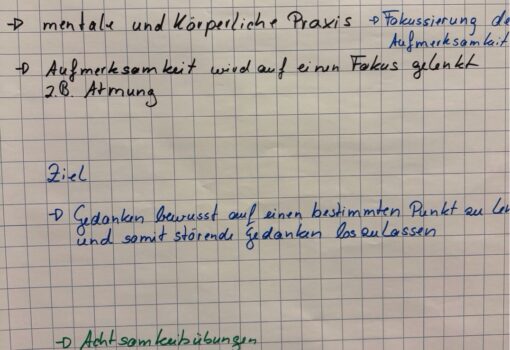 → mentale und Körperliche Praxis → Fokussierung de
Aufmerksamkeit
→ Aufmerksamkeit wird auf einen Fokus gelenkt
z.B. Atmung
Ziel
→ Gedanken bewusst auf einen bestimmten Punkt zu len
und somit störende Gedanken loszulassen
→ Achtsamkeitsübungen